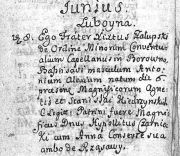 Junius
Luboyna.
Ego Frater Victus Zalupski
de Ordine Minorum Conventu
alium Capellanus in Borowno,
Baptisavi masculum Anto
ninum Aloisium natum die 6
praesens, Magnificorum Agne
tis et Stanislai Kiedrzynskich
C. Legit: Patrini fuere: Magni
ficus Dnus Hypolitus Zabnic
ki cum Anna Conteste sua
ambo de Rząsawy.